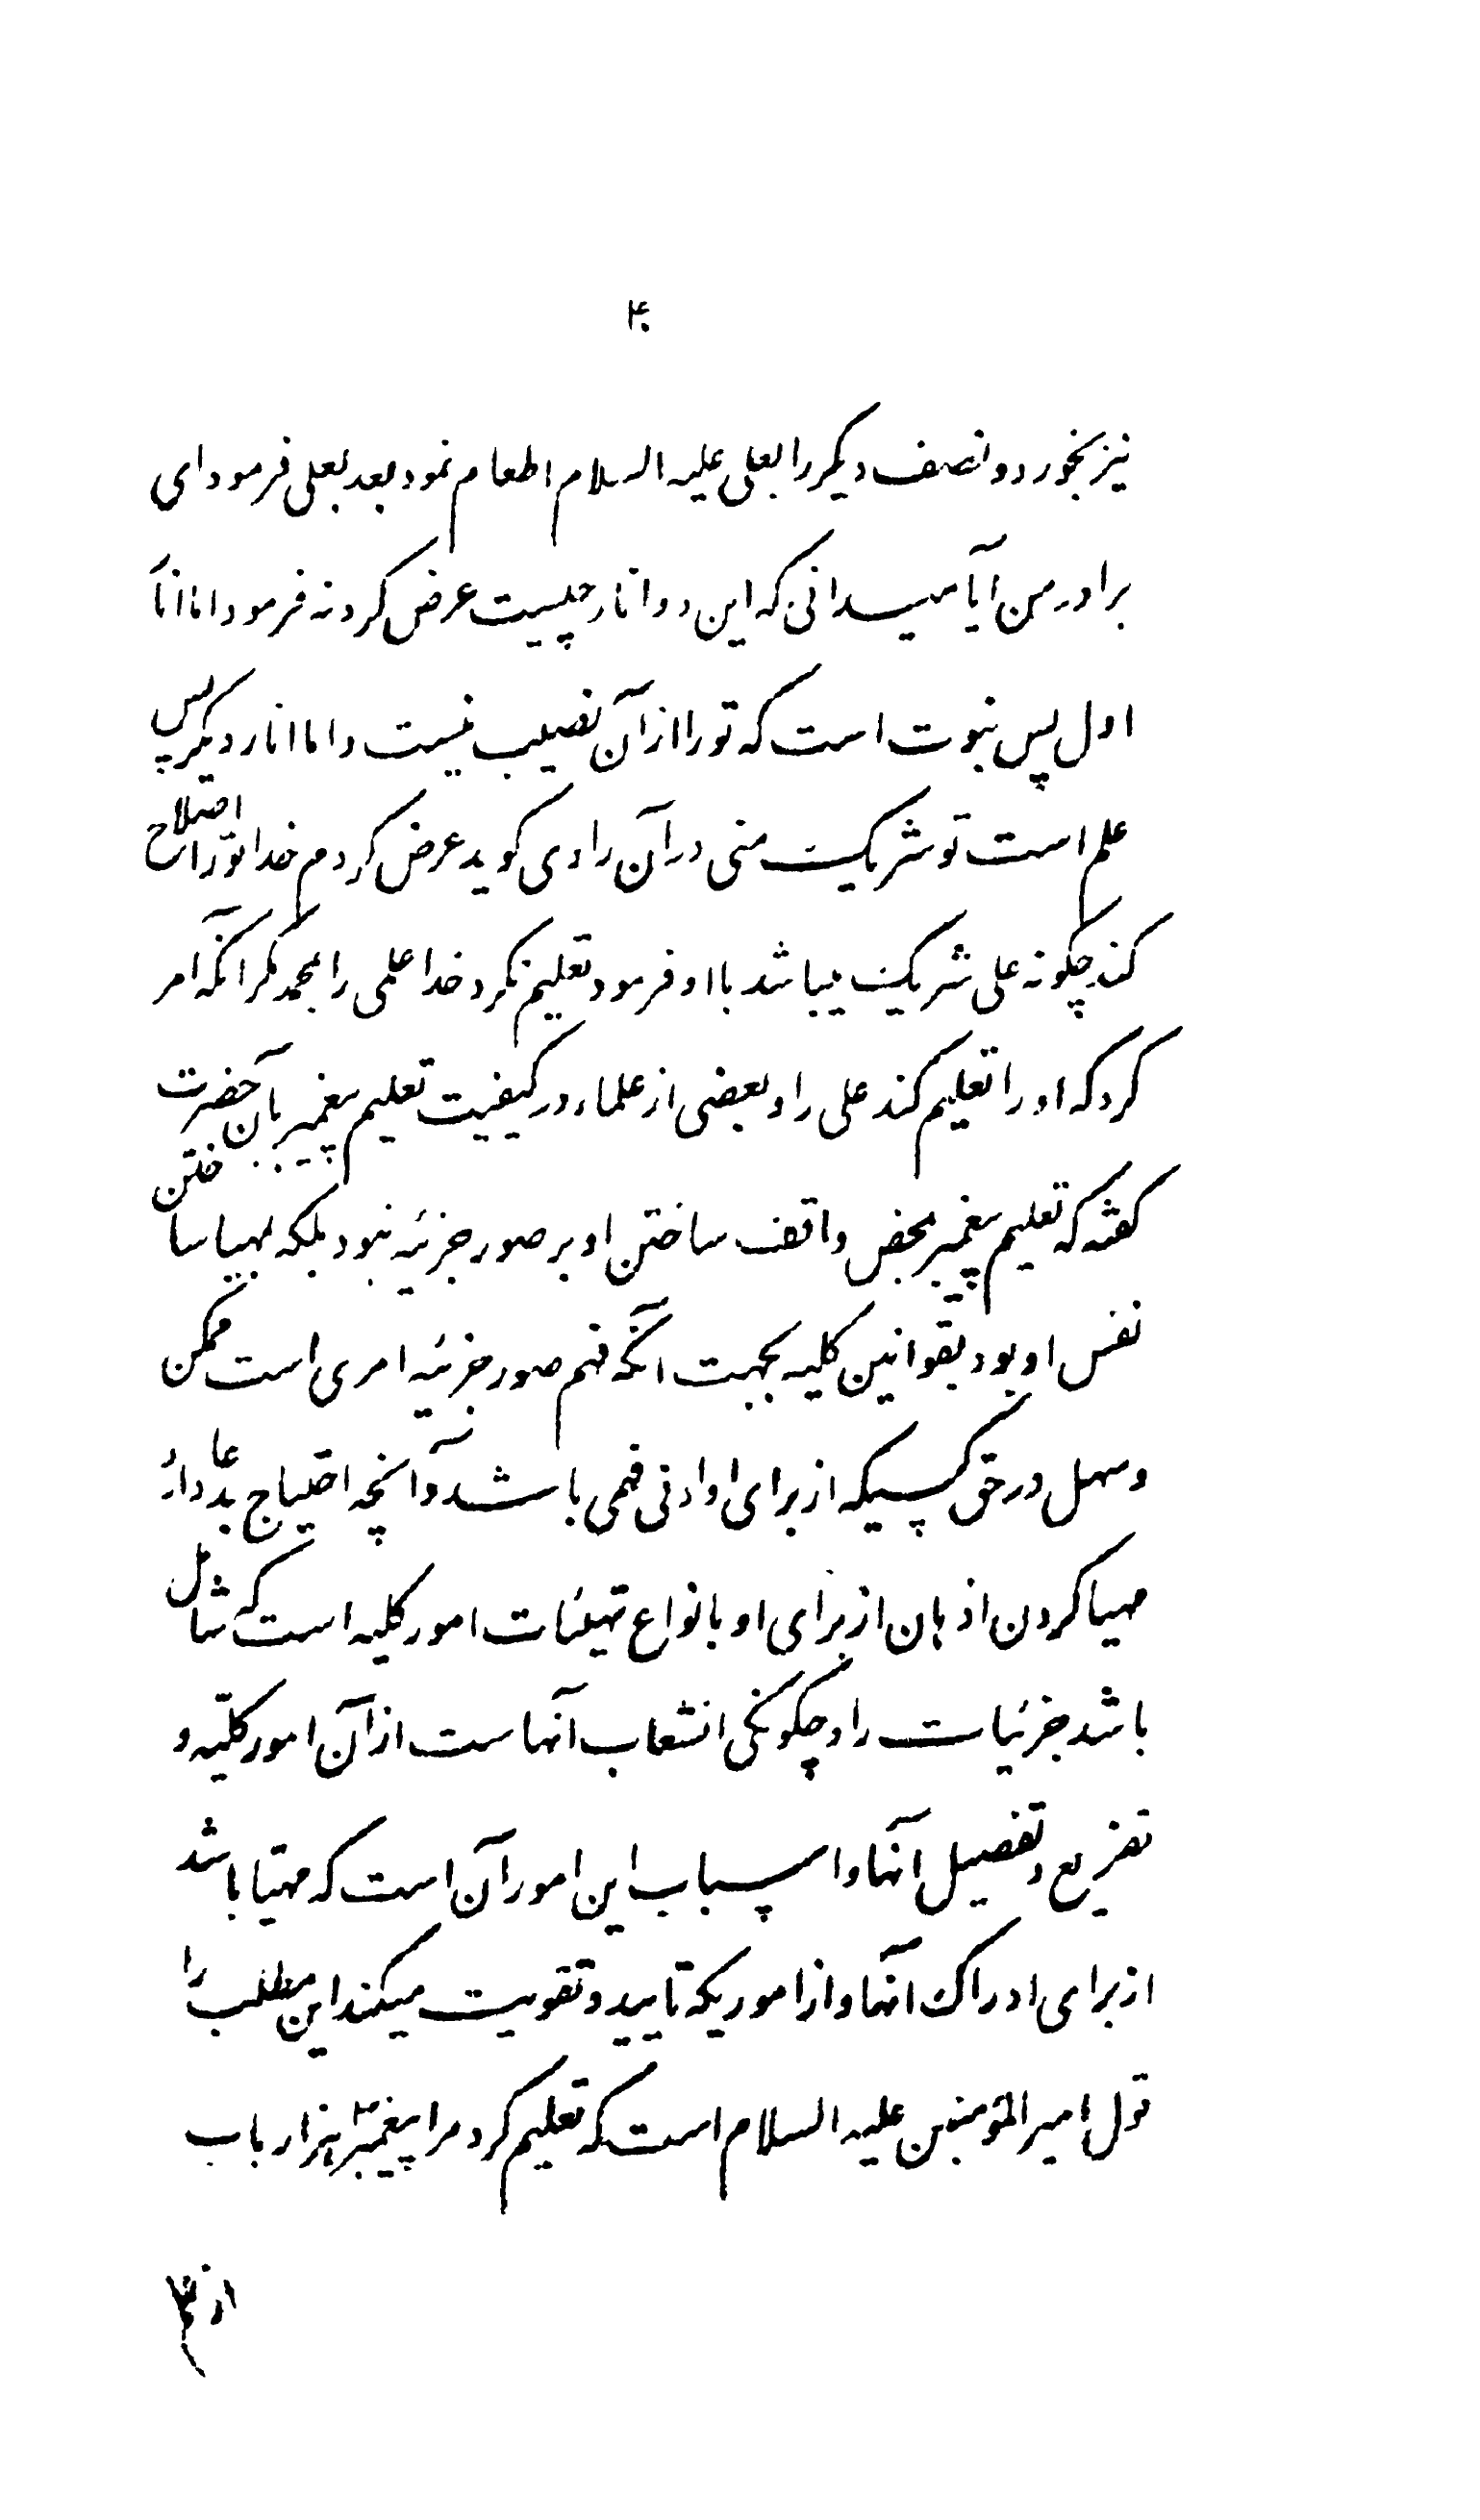 ۴۰
نیز بخورد و نصف دیکر را بعلی علیه السلام اطعام نمود بعد بعلی فرمود ای
برادر من آیا میدانی که این دو انار چیست عرض کرد نه فرمود اما انار
اول پس نبوت است که تو را از آن نصیب نیست و اما انار دیکر پس
علم است تو شریک منی در آن راوی کوید عرض کردم خدا تو را اصلاح
کند چکونه علی شریک میباشد با او فرمود تعلیم نکرد خدا علمی را بمحمد مکر آنکه امر
کرد که او را تعلیم کند علی را و بعضی از علماء در کیفیت تعلیم پیغمبر بآن حضرت
کفته که تعلیم پیغمبر بمحض واقف ساختن او بر صور جزئیه نبود بلکه بمهیا ساختن
نفس او بود بقوانین کلیه بجهت آنکه فهم صور جزئیه امری است ممکن
و سهل در حق کسیکه از برای او ادنی فهمی باشد و آنچه احتیاج بدعا دارد
مهیا کردن اذهان از برای او بانواع تهیئات امور کلیه است که شامل
باشد جزئیات را و چکونکی انشعاب آنهاست از آن امور کلیه و
تفریع و تفصیل آنها و اسباب این امور آن است که مهیا باشد
از برای ادراک آنها و از اموریکه تایید و تقویت میکند این مطلب را
قول امیر المؤمنین علیه السلام است که تعلیم کرد مرا پیغمبر هزار باب